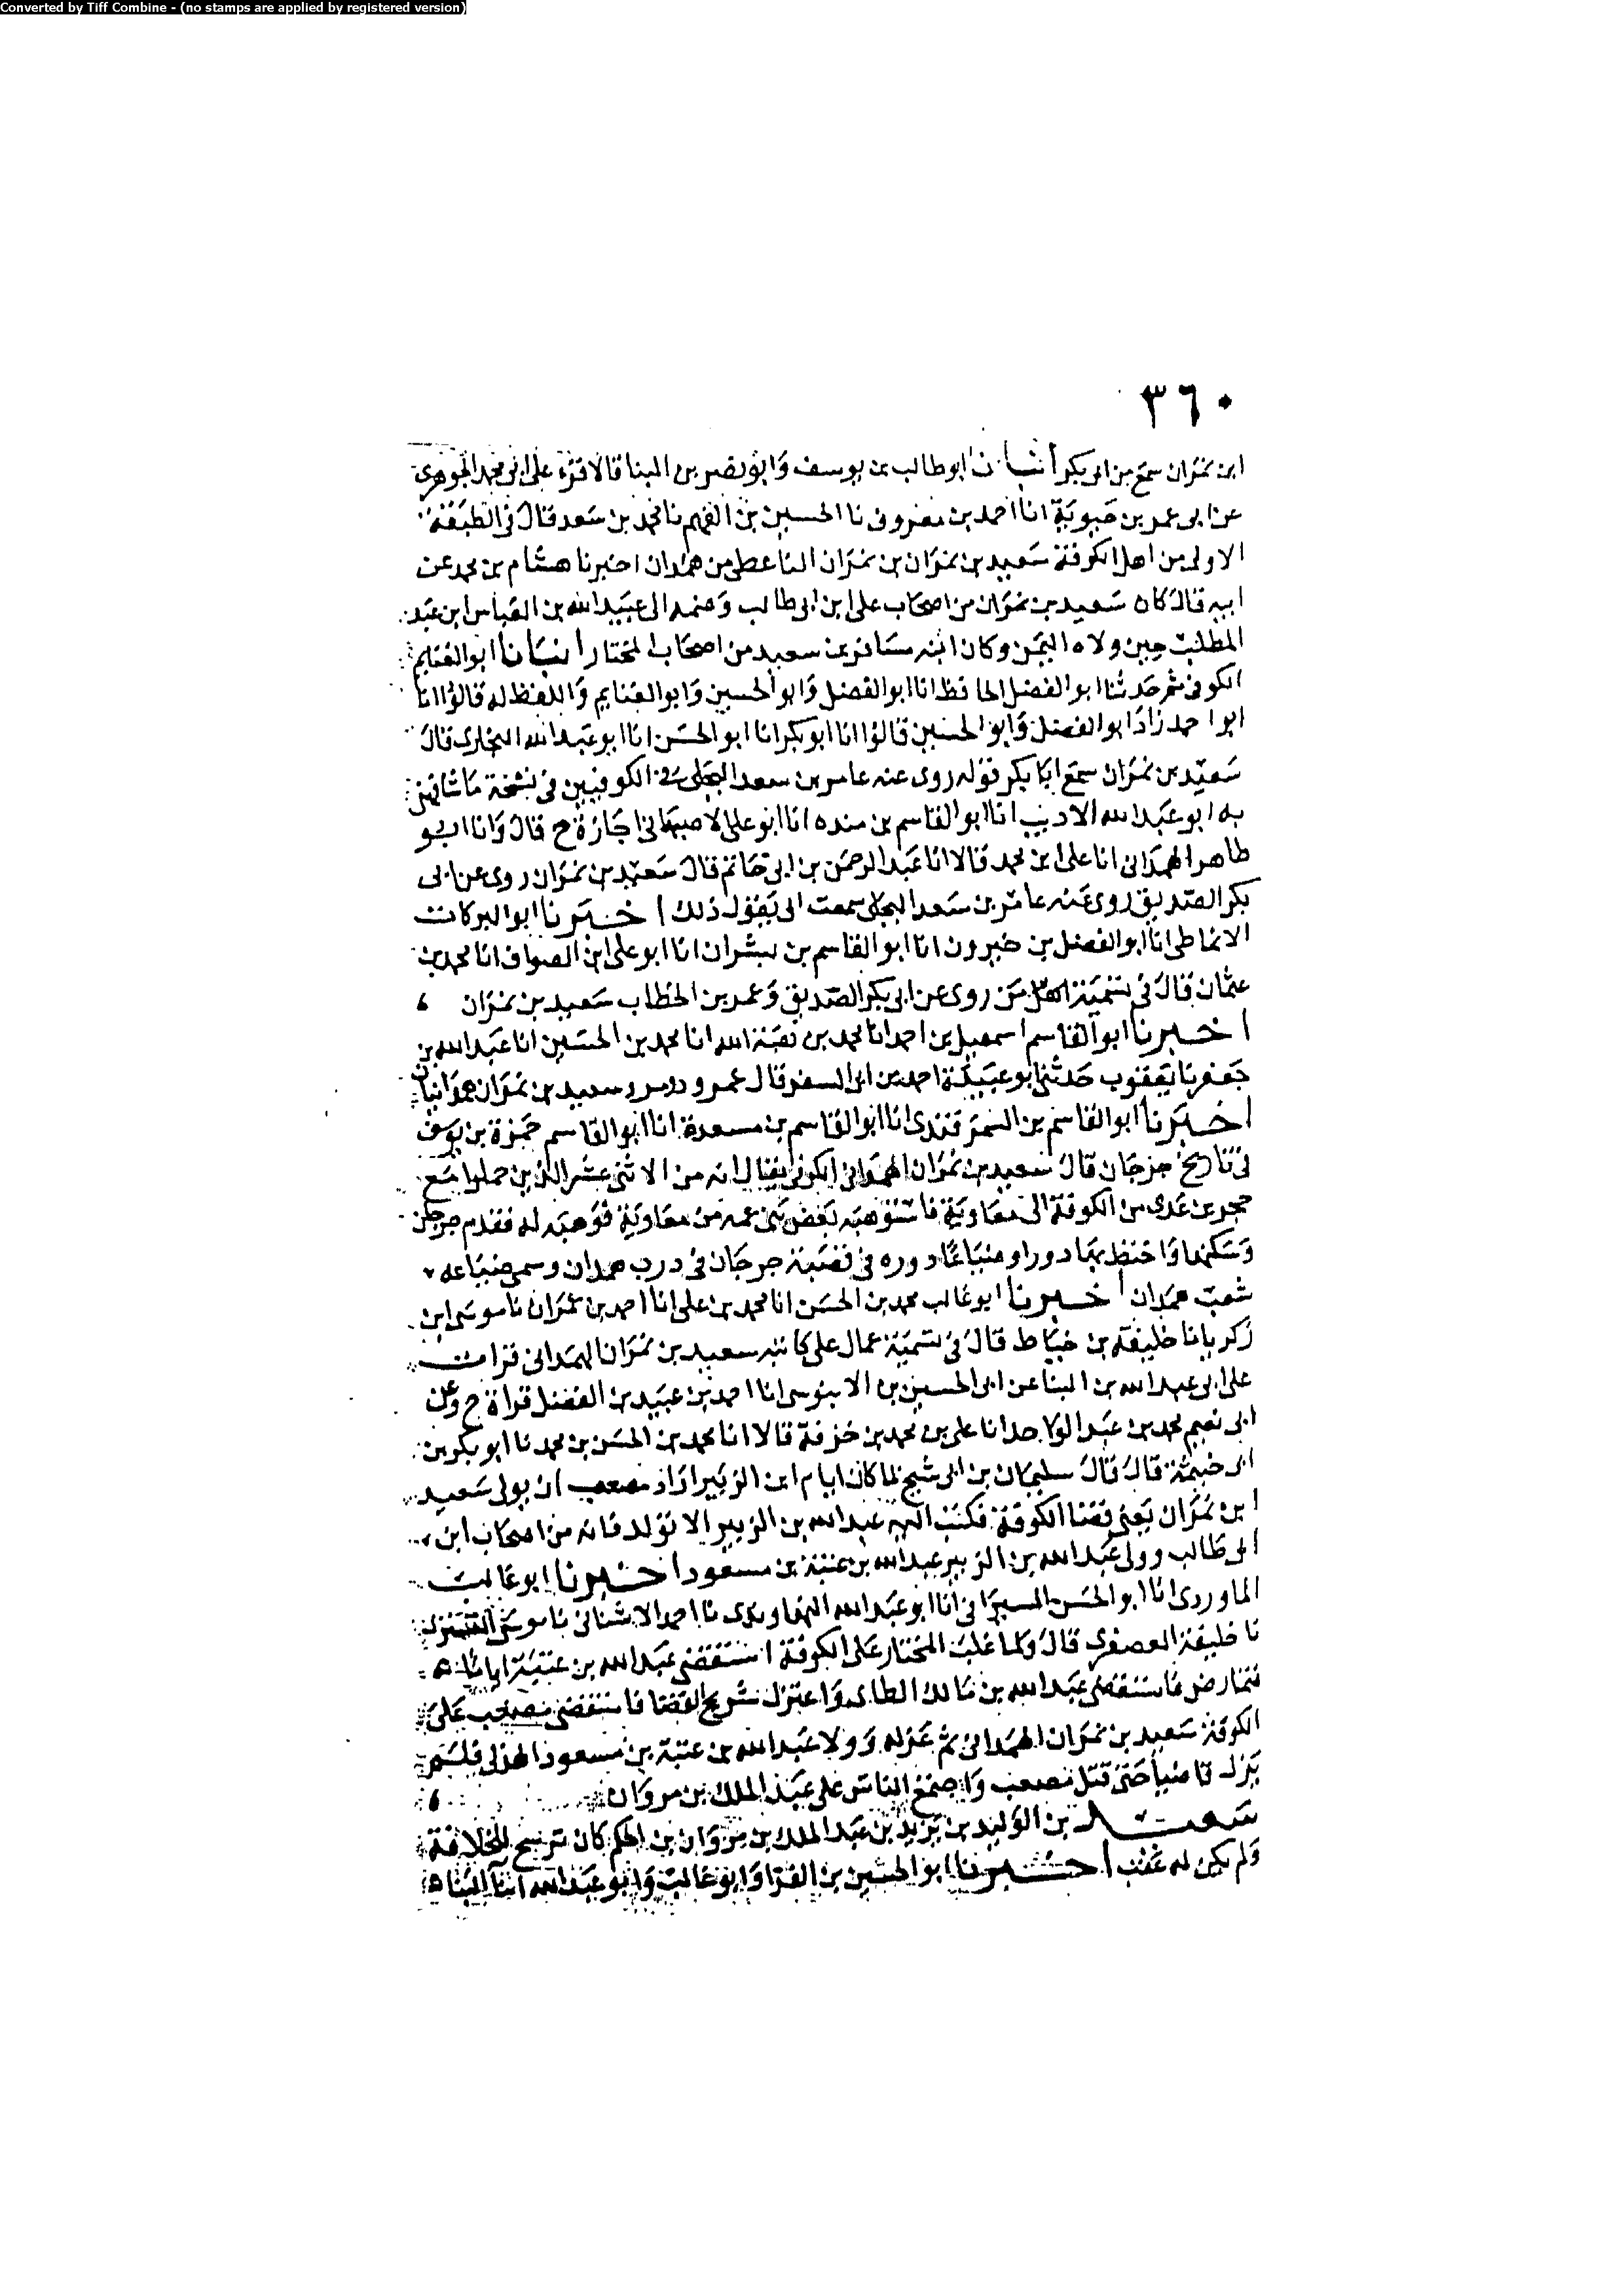 Converted by Tiff Combine - (no stamps are applied by registered version)
٣٦٠
ابن نمران سمع من ابى بكر أنبانا ابو طالب بن يوسف وابو نصر بن البنا قالا قرئ على ابى محمد الجوهرى
عن ابى عمر بن حيوية انا احمد بن معروف نا الحسين بن الفهم نا محمد بن سعد قال فى الطبقة
الاولى من اهل الكوفة سعيد بن نمران بن نمران الناعطى من همدان اخبرنا هشام بن محمد عن
ابيه قال كان سعيد بن نمران من اصحاب على ابن ابى طالب وضمه الى عبيد الله بن العباس ابن عبد
المطلب حين ولاه اليمن وكان ابنه مسافر بن سعيد من اصحاب المختار أنبانا ابو الغنايم
الكوفى ثم حدثنا ابو الفضل الحافظ انا ابو الفضل وابو الحسين وابو الغنايم واللفظ له قالوا انا
ابو احمد زاد ابو الفضل وابو الحسين قالوا انا ابو بكر انا ابو الحسن انا ابو عبد الله البخارى قال
سعيد بن نمران سمع ابا بكر قوله روى عنه عامر بن سعد البجلى فى الكوفيين فى نسخة ما شافهنى
به ابو عبد الله الاديب انا ابو القاسم بن منده انا ابو على الاصبهانى اجازة ح قال وانا ابو
طاهر الهمدانى انا على ابن محمد قالا انا عبد الرحمن بن ابى حاتم قال سعيد بن نمران روى عن ابى
بكر الصديق روى عنه عامر بن سعد البجلى سمعت ابى يقول ذلك أخبرنا ابو البركات
الانماطى انا ابو الفضل بن خيرون انا ابو القاسم بن بشران انا ابو على ابن الصواف انا محمد بن
عثمان قال فى تسمية من روى عن ابى بكر الصديق وعمر بن الخطاب سعيد بن نمران
أخبرنا ابو القاسم اسمعيل بن احمد انا محمد بن هبة الله انا محمد بن الحسين انا عبد الله بن
جعفر نا يعقوب حدثنى ابو عبيدة احمد بن ابى السفر قال عمرو وسعيد بن نمران همدانيان
أخبرنا ابو القاسم بن السمرقندى انا ابو القاسم بن مسعدة انا ابو القاسم حمزة بن يوسف
فى تاريخ جرجان قال سعيد بن نمران الهمدانى الكوفى يقال انه من الاثنى عشر الذين حملوا مع
حجر بن عدى من الكوفة الى معاوية فاستوهبه بعض بنى عمه من معاوية فوهبه له فقدم جرجان
وسكنها واختط بها دورا وضياعا دوره فى قصبة جرجان فى درب همدان وسمى ضياعه
شعب همدان أخبرنا ابو غالب محمد بن الحسن انا محمد بن على انا احمد بن عمران نا موسى ابن
زكريا نا خليفة بن خياط قال فى تسمية عمال على كاتبه سعيد بن نمران الهمدانى قرات
على ابى عبد الله بن البنا عن ابى الحسين بن الابنوسى انا احمد بن عبيد بن الفضل قراة ح وعن
ابى نعيم محمد بن عبد الواحد انا على بن محمد بن خزفة قالا انا محمد بن الحسن بن محمد نا ابو بكر بن
ابى خيثمة قال قال سليمان بن ابى شيخ لما كان ايام ابن الزبير اراد مصعب ان يولى سعيد
ابن نمران يعنى قضا الكوفة فكتب اليه عبد الله بن الزبير الا تولد فانه من اصحاب ابن
ابى طالب وولى عبد الله بن الزبير عبد الله بن عتبة بن مسعود أخبرنا ابو غالب
الماوردى انا ابو الحسن السيرافى انا ابو عبد الله النهاوندى نا احمد الاشنانى نا موسى التسترى
نا خليفة العصفرى قال ولما غلب المختار على الكوفة استقضى عبد الله بن عتبة اياما
فتمارض فاستقضى عبد الله بن مالك الطاى واعتزل شريح القضا فاستقضى مصعب على
الكوفة سعيد بن نمران الهمدانى ثم عزله وولا عبد الله بن عتبة بن مسعود الهذلى فلم
يزل قاضيا حتى قتل مصعب واجتمع الناس على عبد الملك بن مروان
سعيد بن الوليد بن يزيد بن عبد الملك بن مروان بن الحكم كان ترشح للخلافة
ولم يكن له عقب أخبرنا ابو الحسين بن الفرا وابو غالب وابو عبد الله ابنا البنا